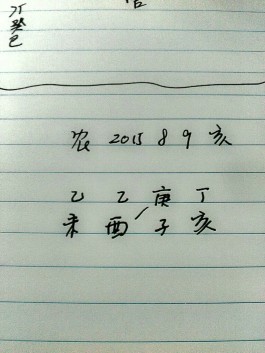 癸
农 2015 8 9 亥
乙 乙 庚 丁
未 酉 子 亥